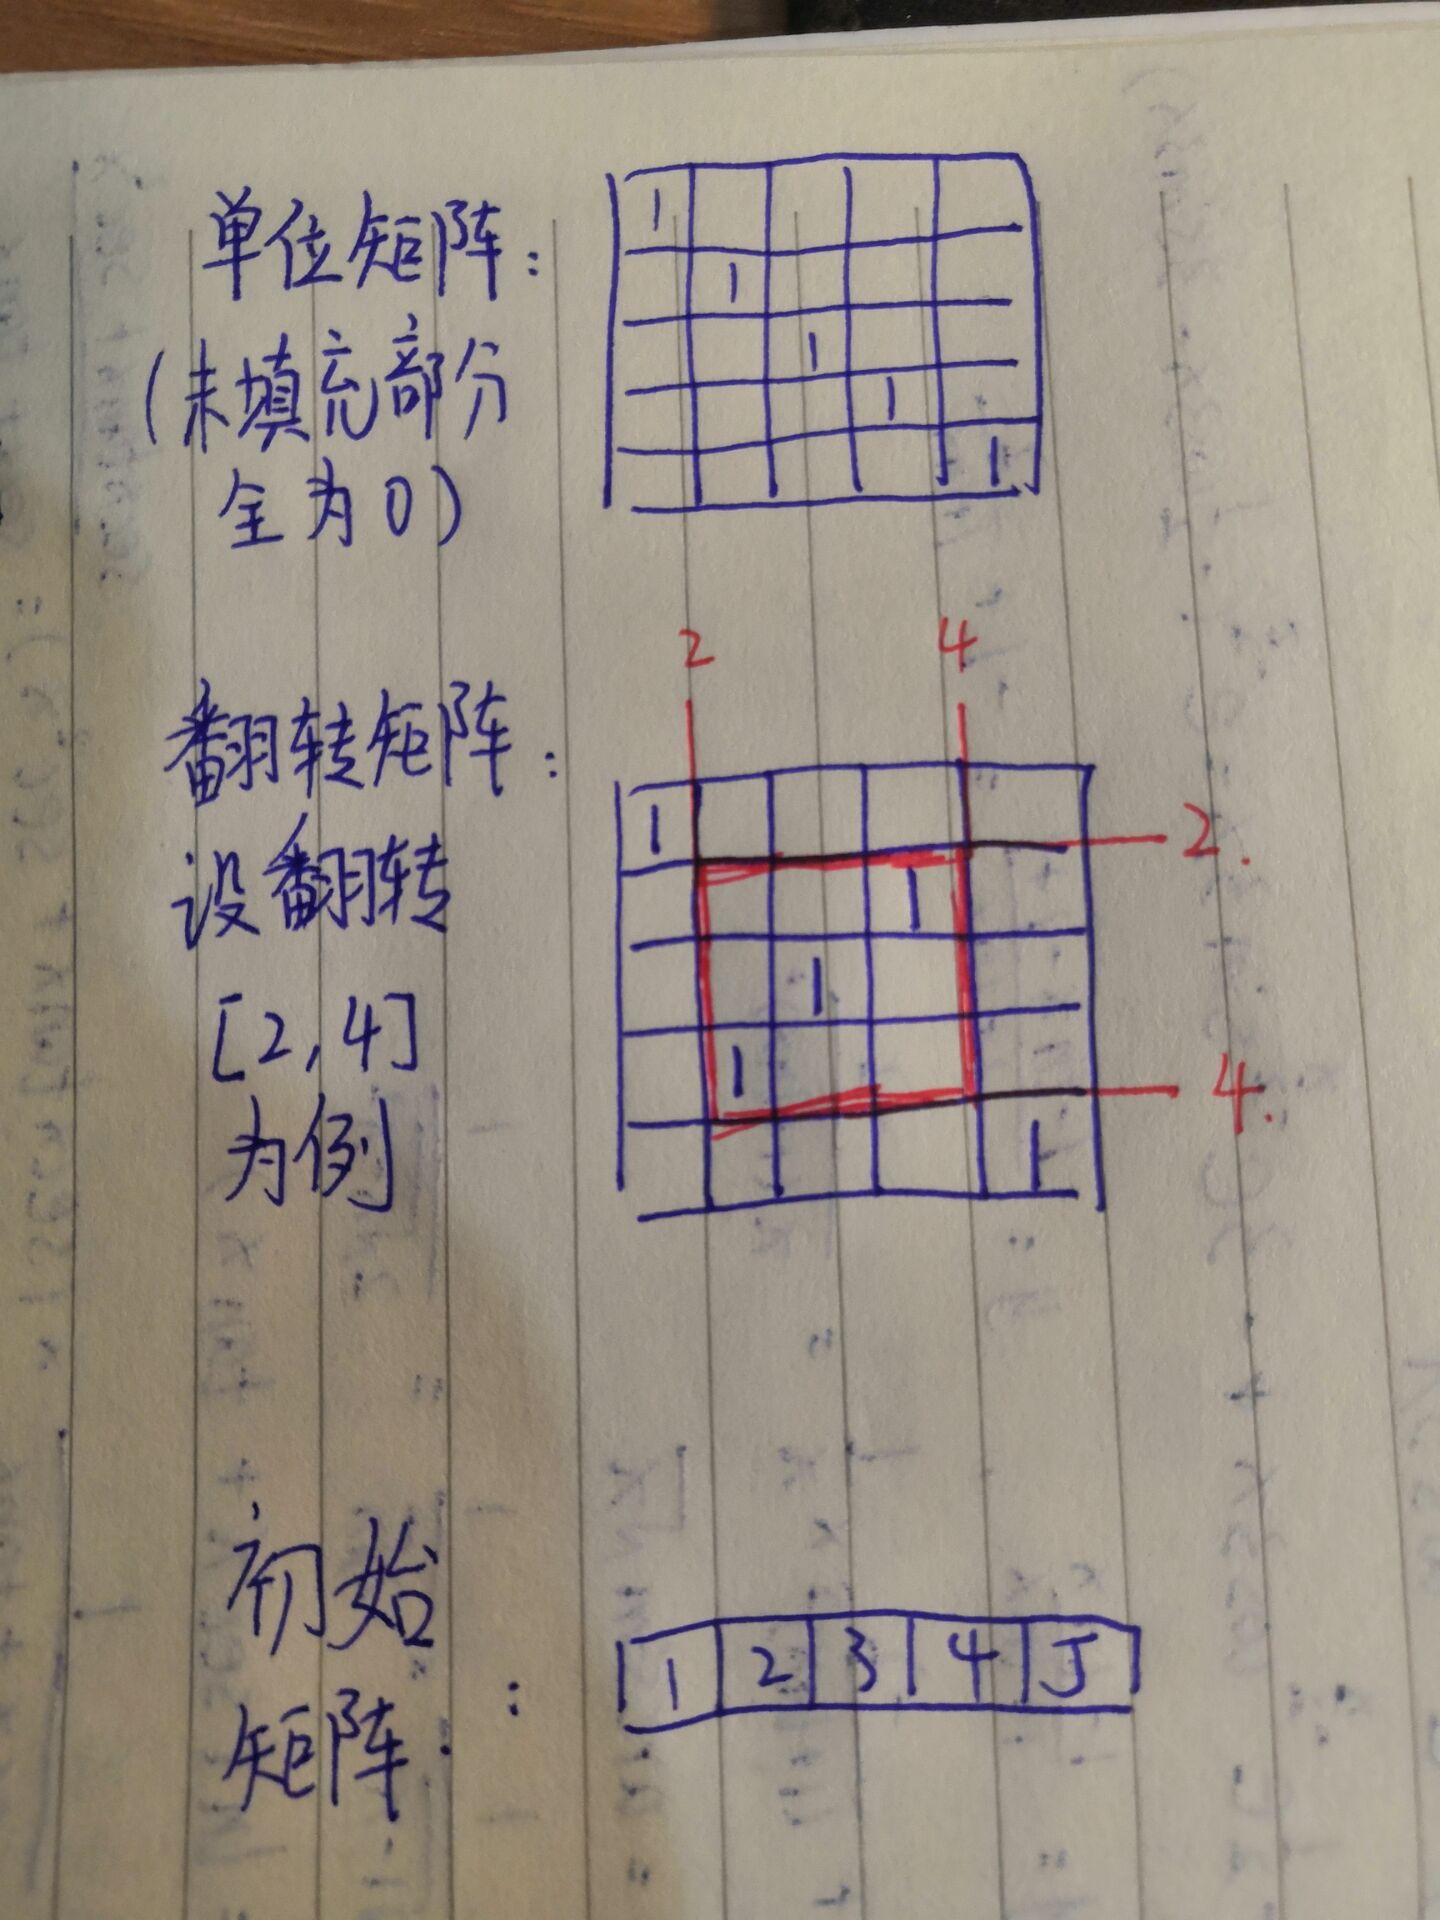 单位矩阵：
（未填充部分
全为0）
1
1
1
1
1
2 4
翻转矩阵：
设翻转
[2,4]
为例
2.
4.
1
1
1
1
1
初始
矩阵：
1 2 3 4 5